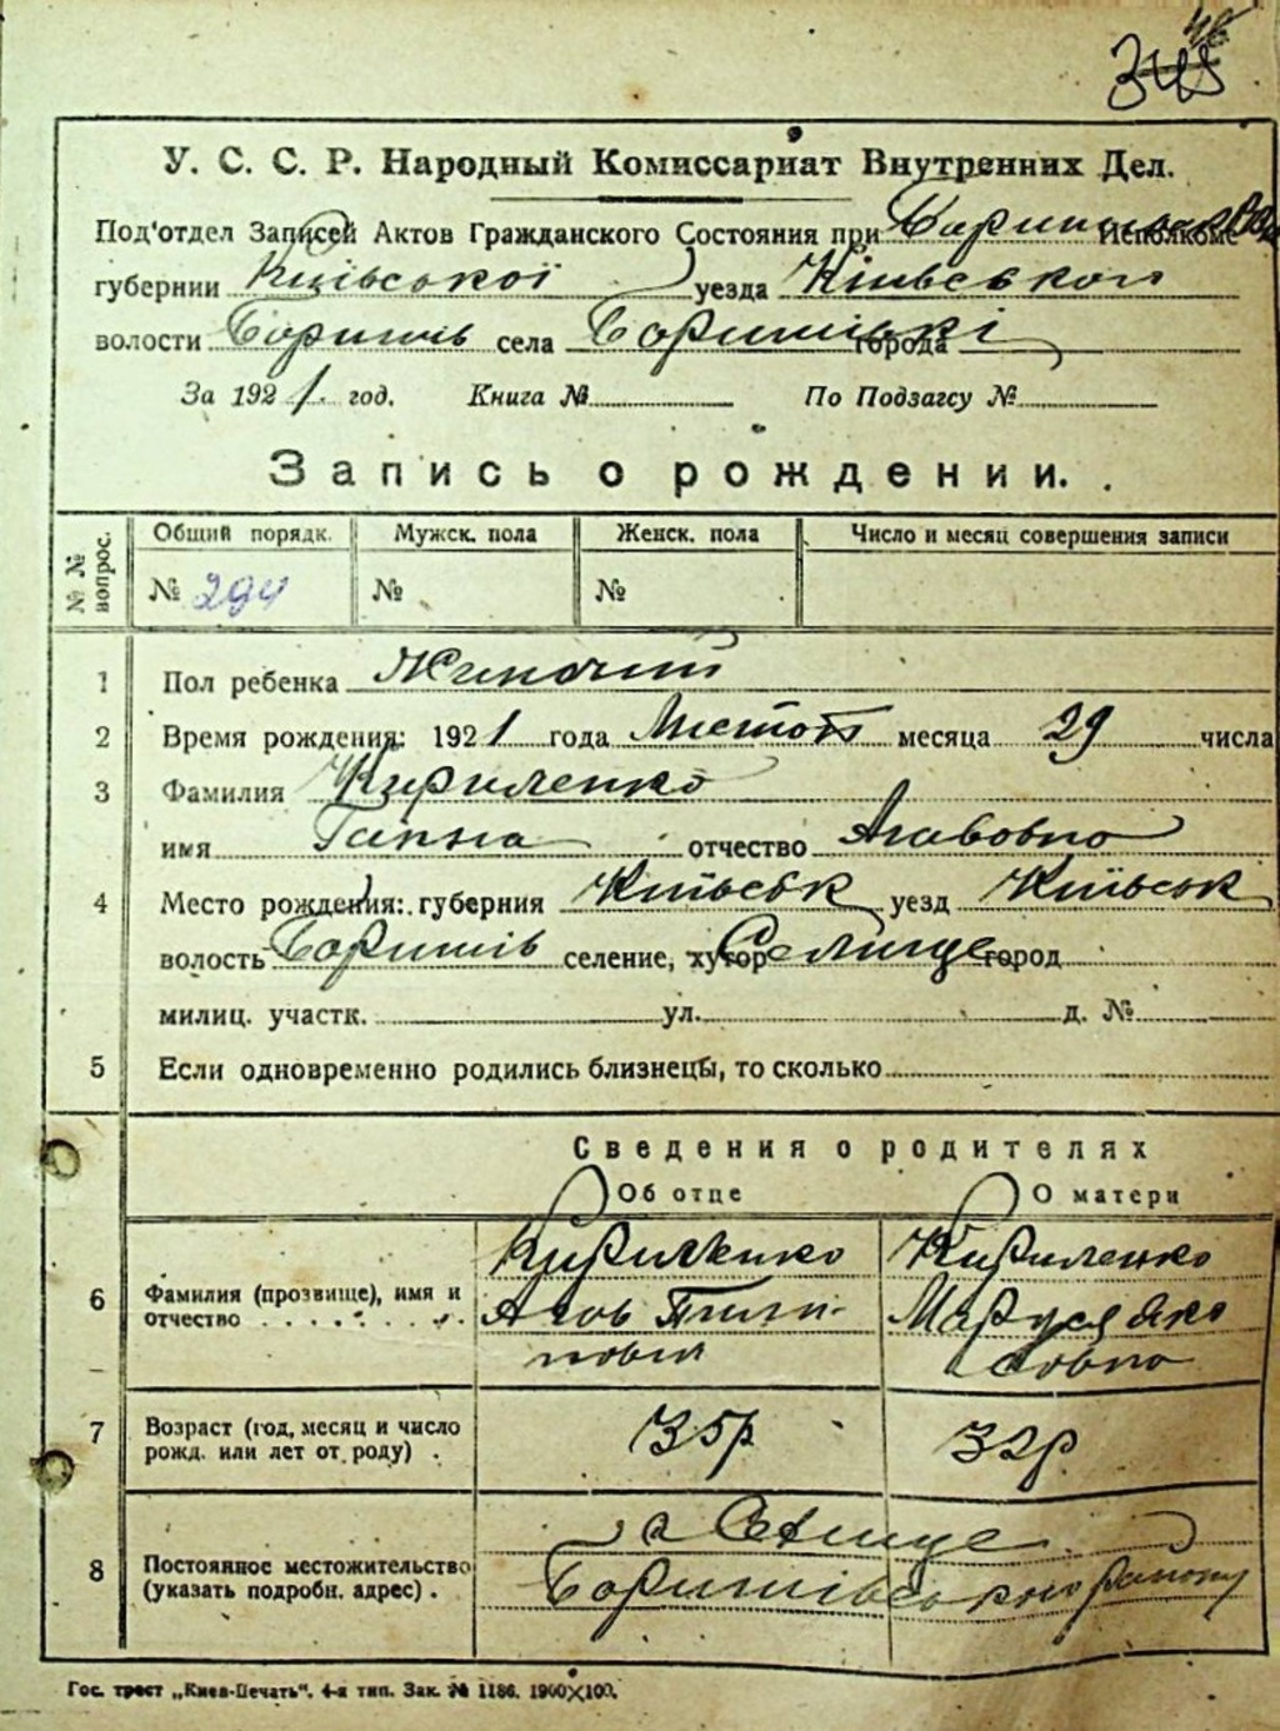 У. С. С. Р. Народный Комиссариат Внутренних Дел.
Под'отдел Записей Актов Гражданского Состояния при Исполкоме
губернии Київської уезда Київського
волости Баришів села Баришівкі города
За 1921 год. Книга № По Подзагсу №
Запись о рождении.
№ № вопрос. Общий порядк. Мужск. пола Женск. пола Число и месяц совершения записи
№ 294 № №
1 Пол ребенка Жиночий
2 Время рождения: 1921 года Листоп месяца 29 числа
3 Фамилия Кириленко
имя Ганна отчество
4 Место рождения: губерния Київськ уезд Київськ
волость Баришів селение, хутор Селище город
милиц. участк. ул. д. №
5 Если одновременно родились близнецы, то сколько
Сведения о родителях
Об отце О матери
6 Фамилия (прозвище), имя и отчество Кириленко Кириленко
Пили- Маруся Яко
пович вовна
7 Возраст (год, месяц и число рожд. или лет от роду) 35р 32р
8 Постоянное местожительство (указать подробн. адрес) Селище
Баришівського району
Гос. трест „Киев-Печать". 4-я тип. Зак. № 1186. 1900×100.